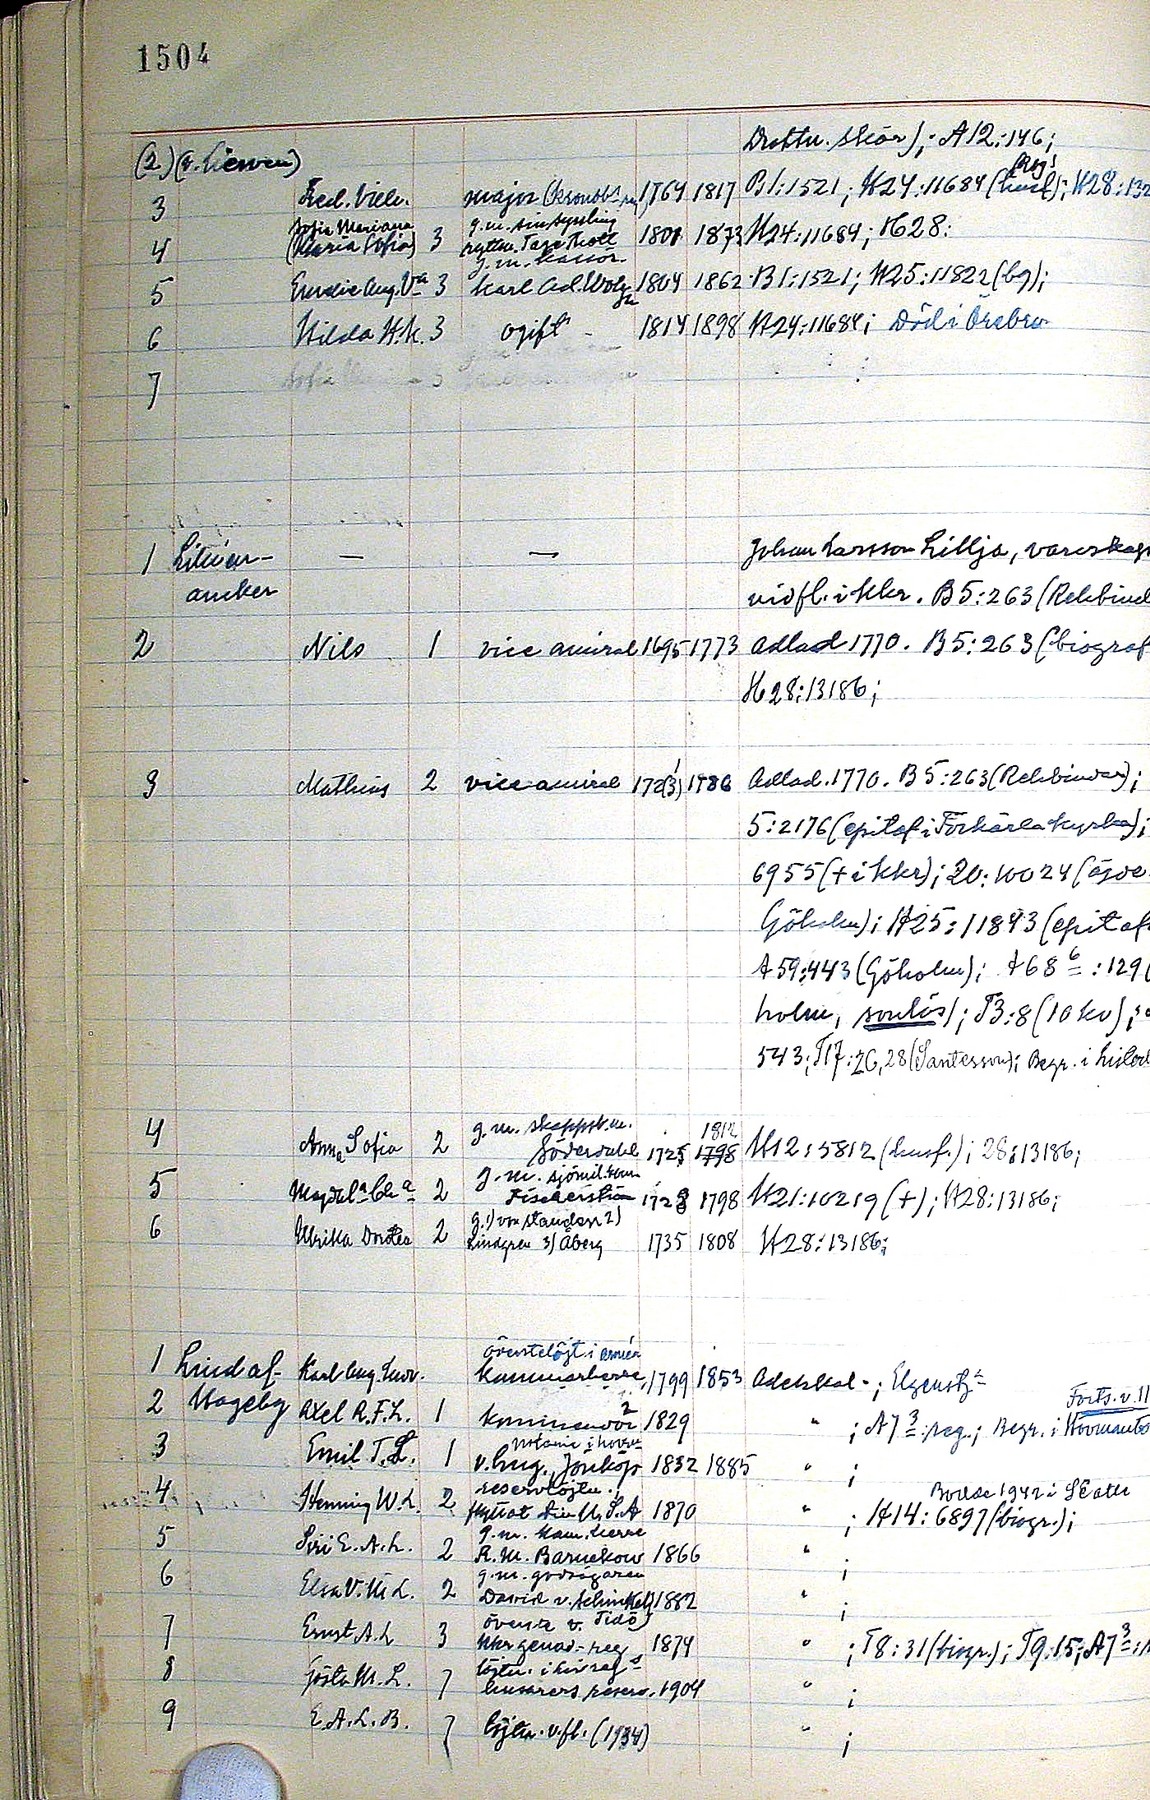 1504
Drottn. skär); A12:146;
(2) (v. Liewen)
(Reg!
3 Fred. Vilh. major (Kronobs. reg) 1764 1817 B1:1521; H24:11684 (husf); H28:132
Sofia Mariana g.m. sin syssling
4 (Maria Sofia) 3 ryttm. Tage Thott 1801 1873 H24:11684; H28:
g.m. kassör.
5 Emilie Aug. Va 3 Karl Ad. 1804 1862 B1:1521; H25:11822 (bg);
6 Hilda H.K. 3 ogift 1814 1898 H24:11684; Död i Örebro
7
1 Lilien- — — Johan Larsson Lillja, varvskap
ancker vidfl. i Kkr. B5:263 (Rehbind
2 Nils 1 vice amiral 1695 1773 Adlad 1770. B5:263 (biograf
H28:13186;
3 Mathias 2 vice amiral 172(3) 1786 Adlad. 1770. B5:263 (Rehbinder);
5:2176 (epitaf i Förkärla kyrka);
6955 (+ i Kkr); 20:10024 (
Göholm); H25:11843 (epitaf
A59:443 (Göholm); A68 6 :129 (
holm, sonlös); T3:8 (10 kv);
543; T17:26,28 (Santesson); Begr. i
4 g.m. skeppsb.m. 1812
Anna Sofia 2 Söderdahl 1725 1798 H12:5812 (husf.); 28:13186;
5 g.m. sjömil.kom
Magdala Cha 2 Fischerström 1728 1798 H21:10219 (+); H28:13186;
6 g. 1) von Stauden 2)
Ulrika Dorotea 2 Lindgren 3) Åberg 1735 1808 H28:13186;
överstelöjt. i armén
1 Lind af Karl Aug. Ludv. Kammarherre, 1799 1853 Adelskal-; Elgenstja
Forts. v. 11
2 Hageby Axel R.F.L. 1 kommendör 2 1829 " ; A7 3:reg.; Begr. i
notarie i hovr.
3 Emil T.L. 1 v. häg. Jönköp 1832 1885 " ;
reservlöjtn.; Bodde 1942 i
4 Henning W.L. 2 flyttat till U.S.A 1870 ; H14:6897 (biogr.);
g.m. kam.herre
5 Siri E.A.L. 2 R.M. Barnekow 1866 " ;
g.m. godsägaren
6 Elsa V.M.L. 2 David v. Schinkel 1882 " ;
överste v. Tidö)
7 Ernst A.L 3 1874 " ; T8:31 (biogr.); T9:15; A7 3:
löjtn. i livreg:s
8 Gösta M.L. 7 husarers reserv. 1904 " ;
9 E.A.L.B. 7 löjtn. v. fl. (1934) " ;